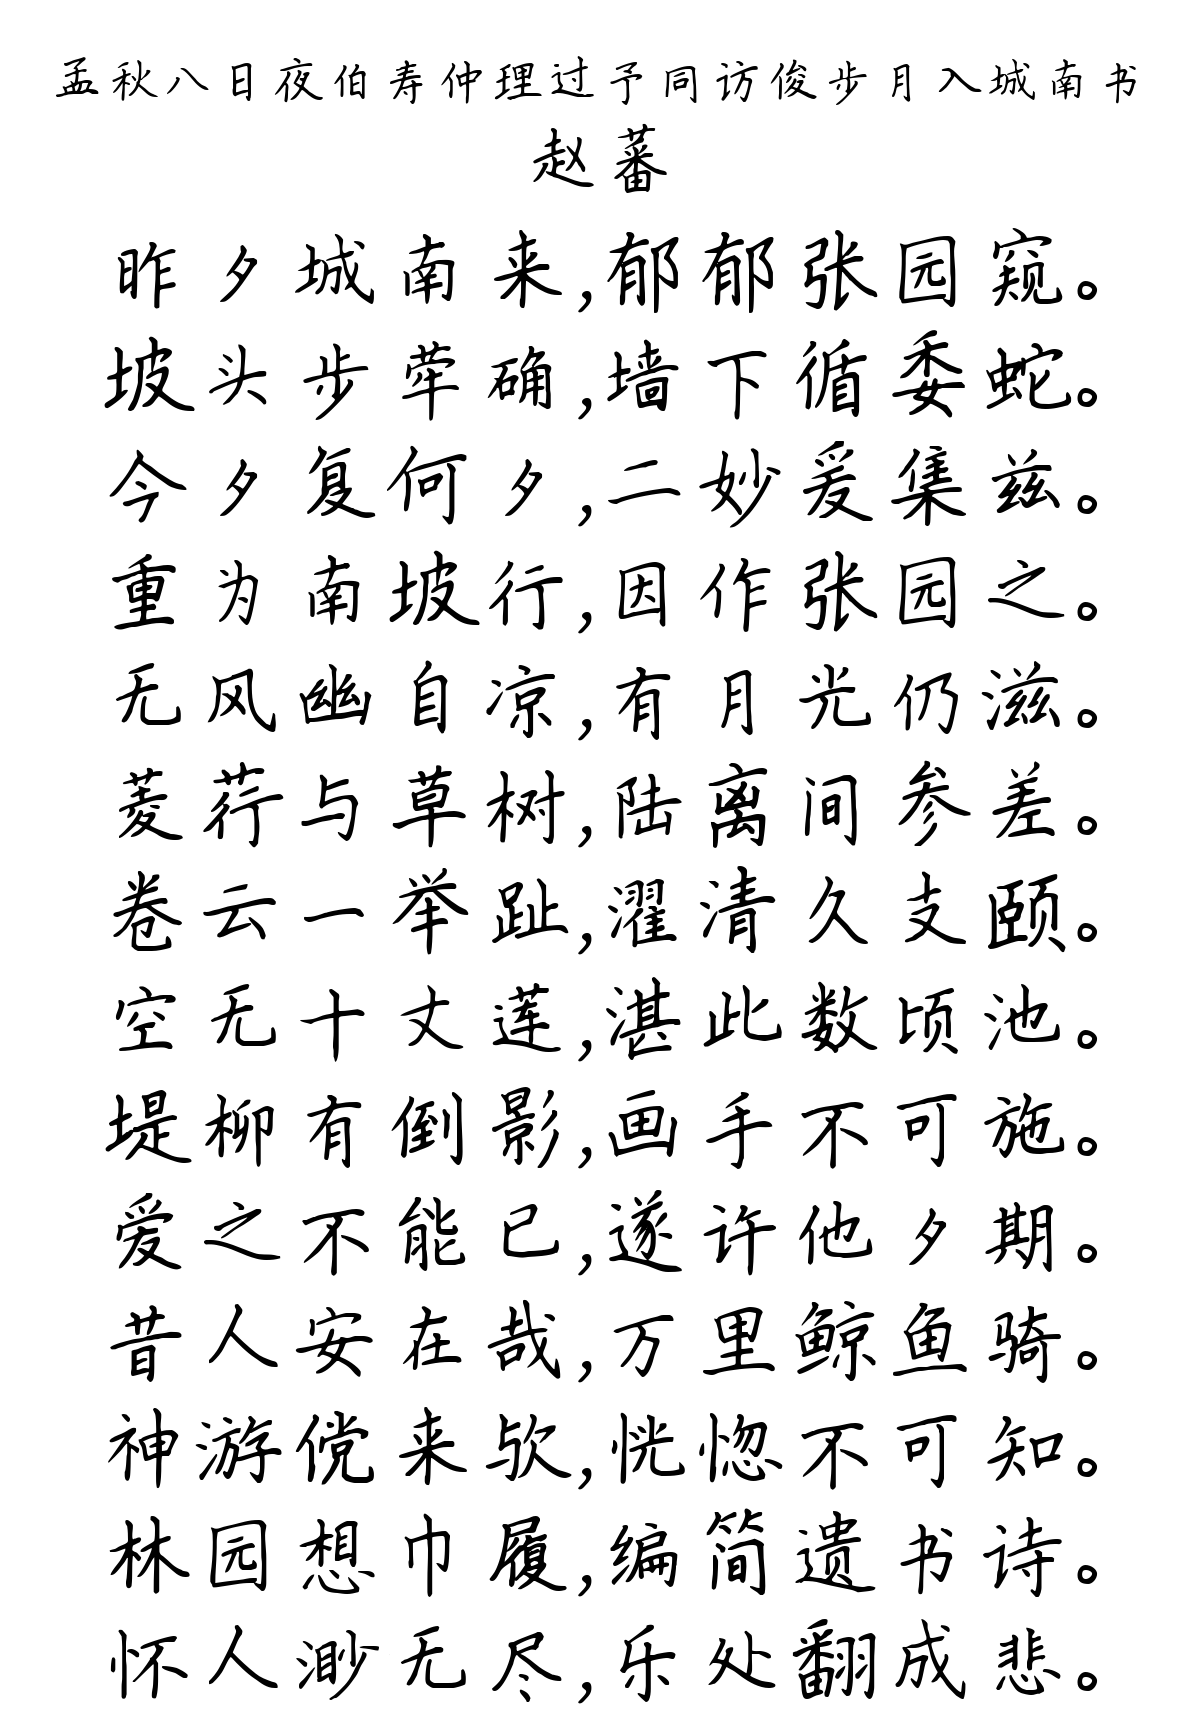 孟秋八日夜伯寿仲理过予同访俊步月入城南书
赵蕃
昨夕城南来,郁郁张园窥。
坡头步荦确,墙下循委蛇。
今夕复何夕,二妙爰集兹。
重为南坡行,因作张园之。
无风幽自凉,有月光仍滋。
菱荇与草树,陆离间参差。
卷云一举趾,濯清久支颐。
空无十丈莲,湛此数顷池。
堤柳有倒影,画手不可施。
爱之不能已,遂许他夕期。
昔人安在哉,万里鲸鱼骑。
神游傥来欤,恍惚不可知。
林园想巾履,编简遗书诗。
怀人渺无尽,乐处翻成悲。